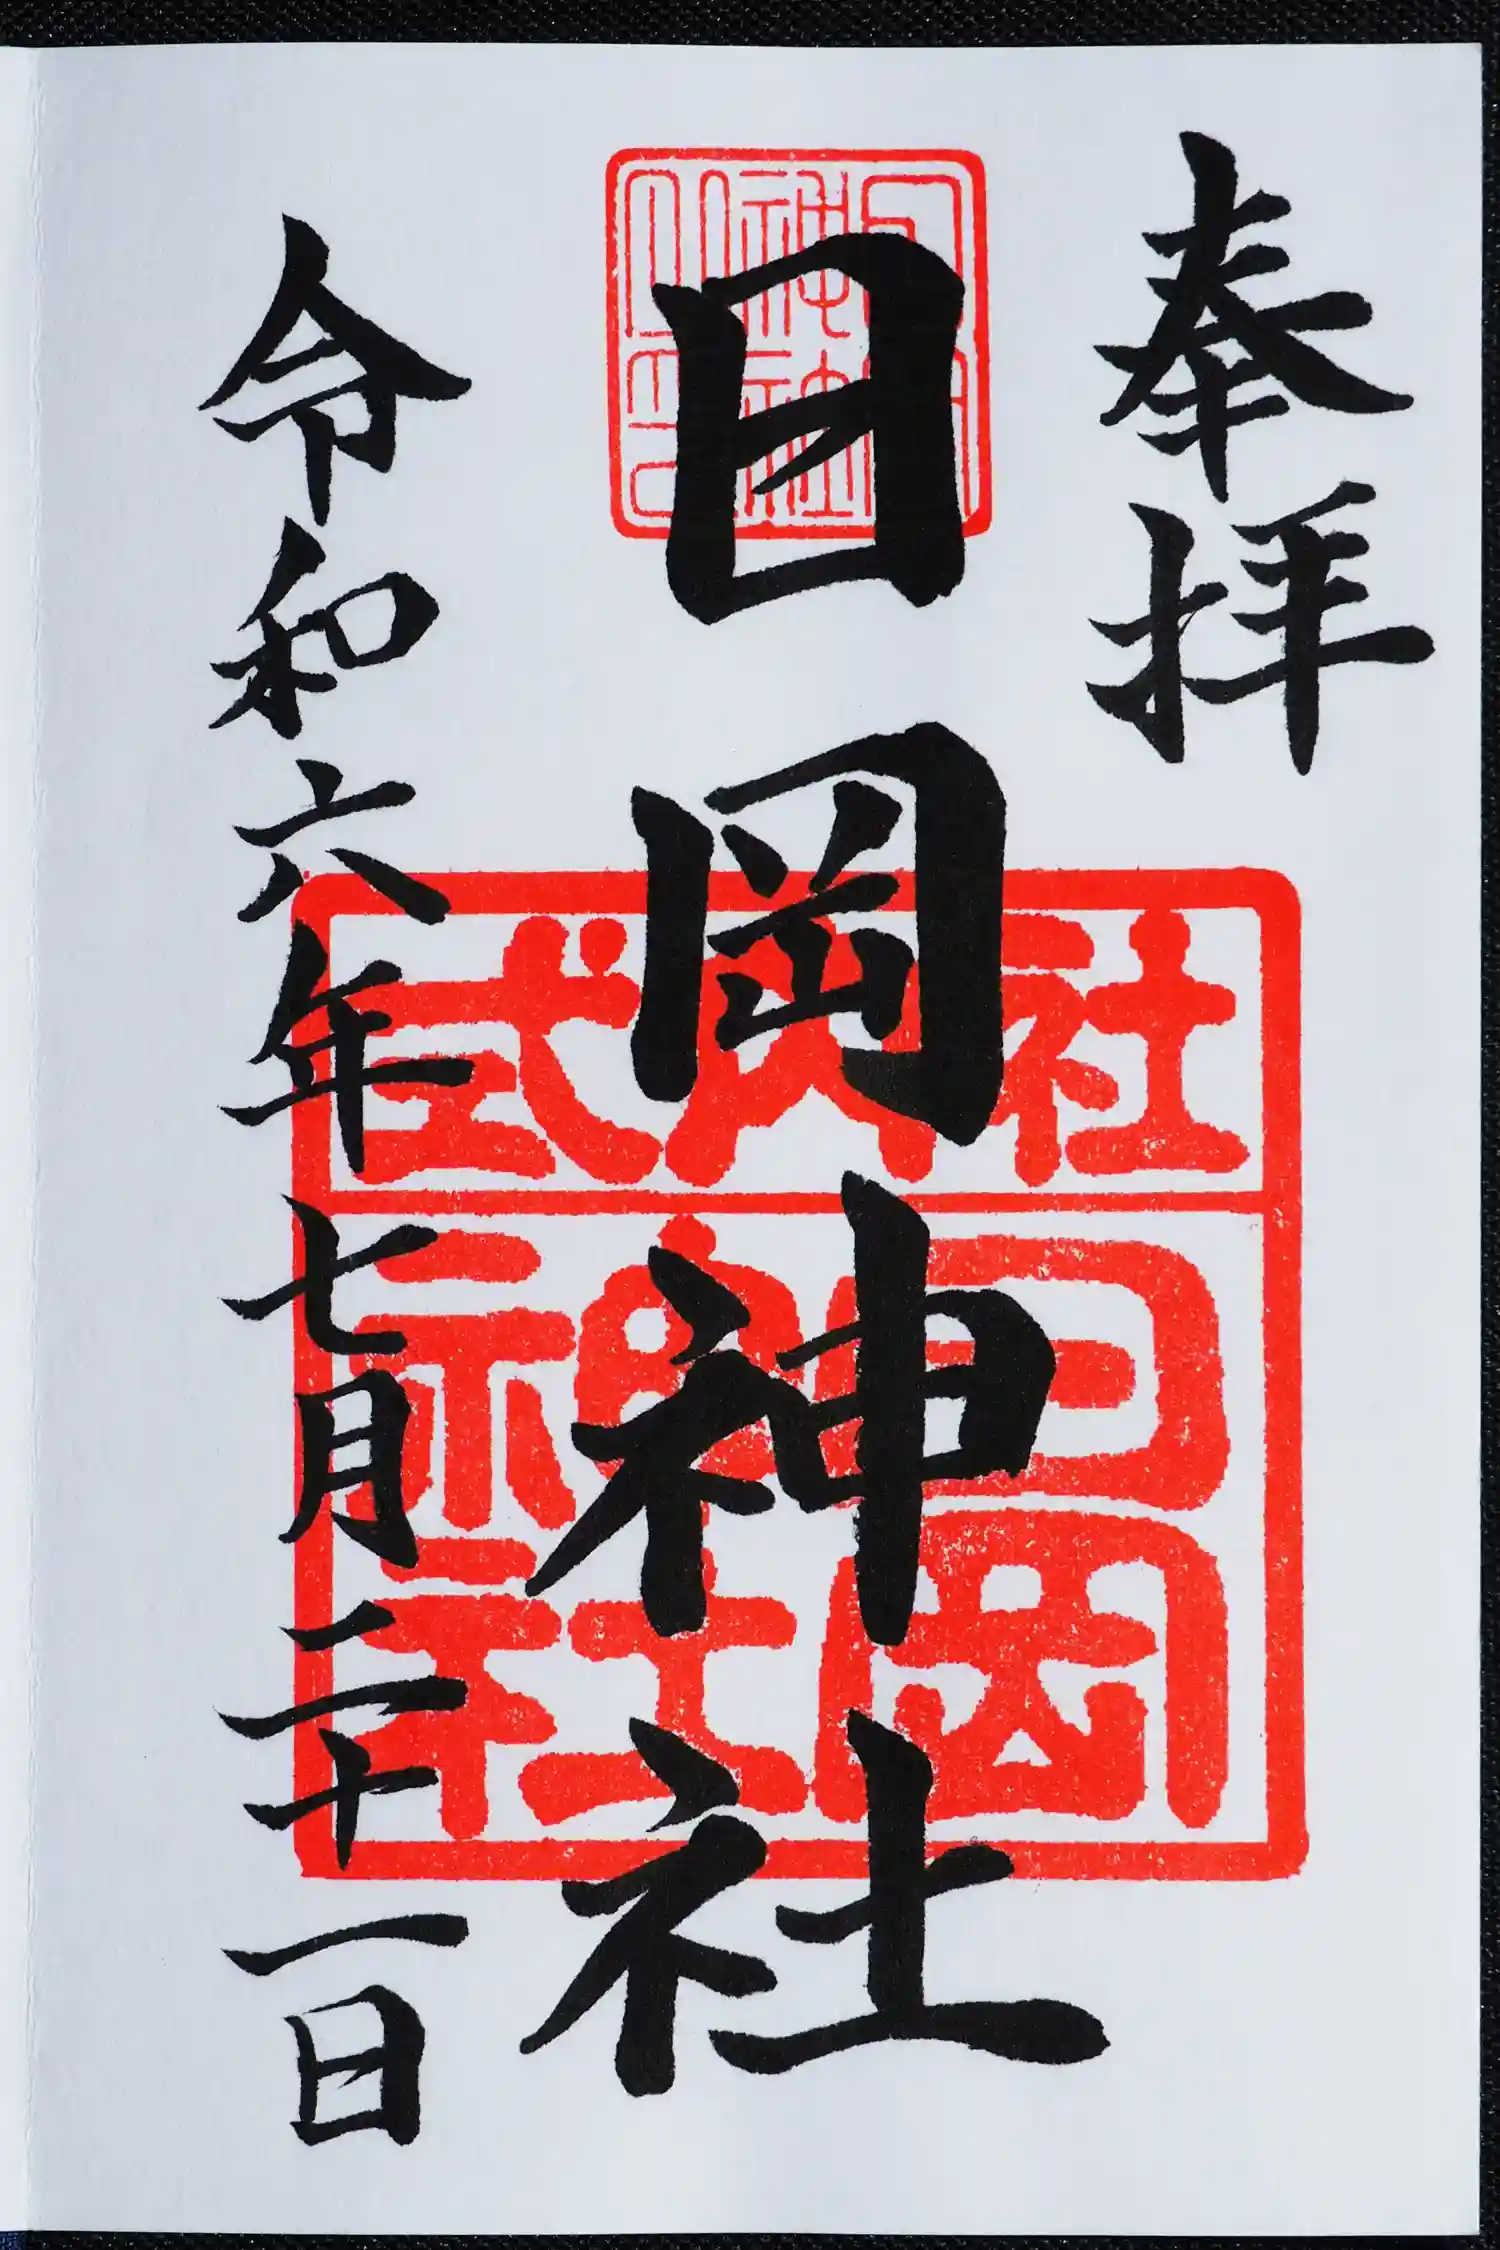 奉拝
日岡神社
令和六年七月二十一日
式内社
日岡
神社